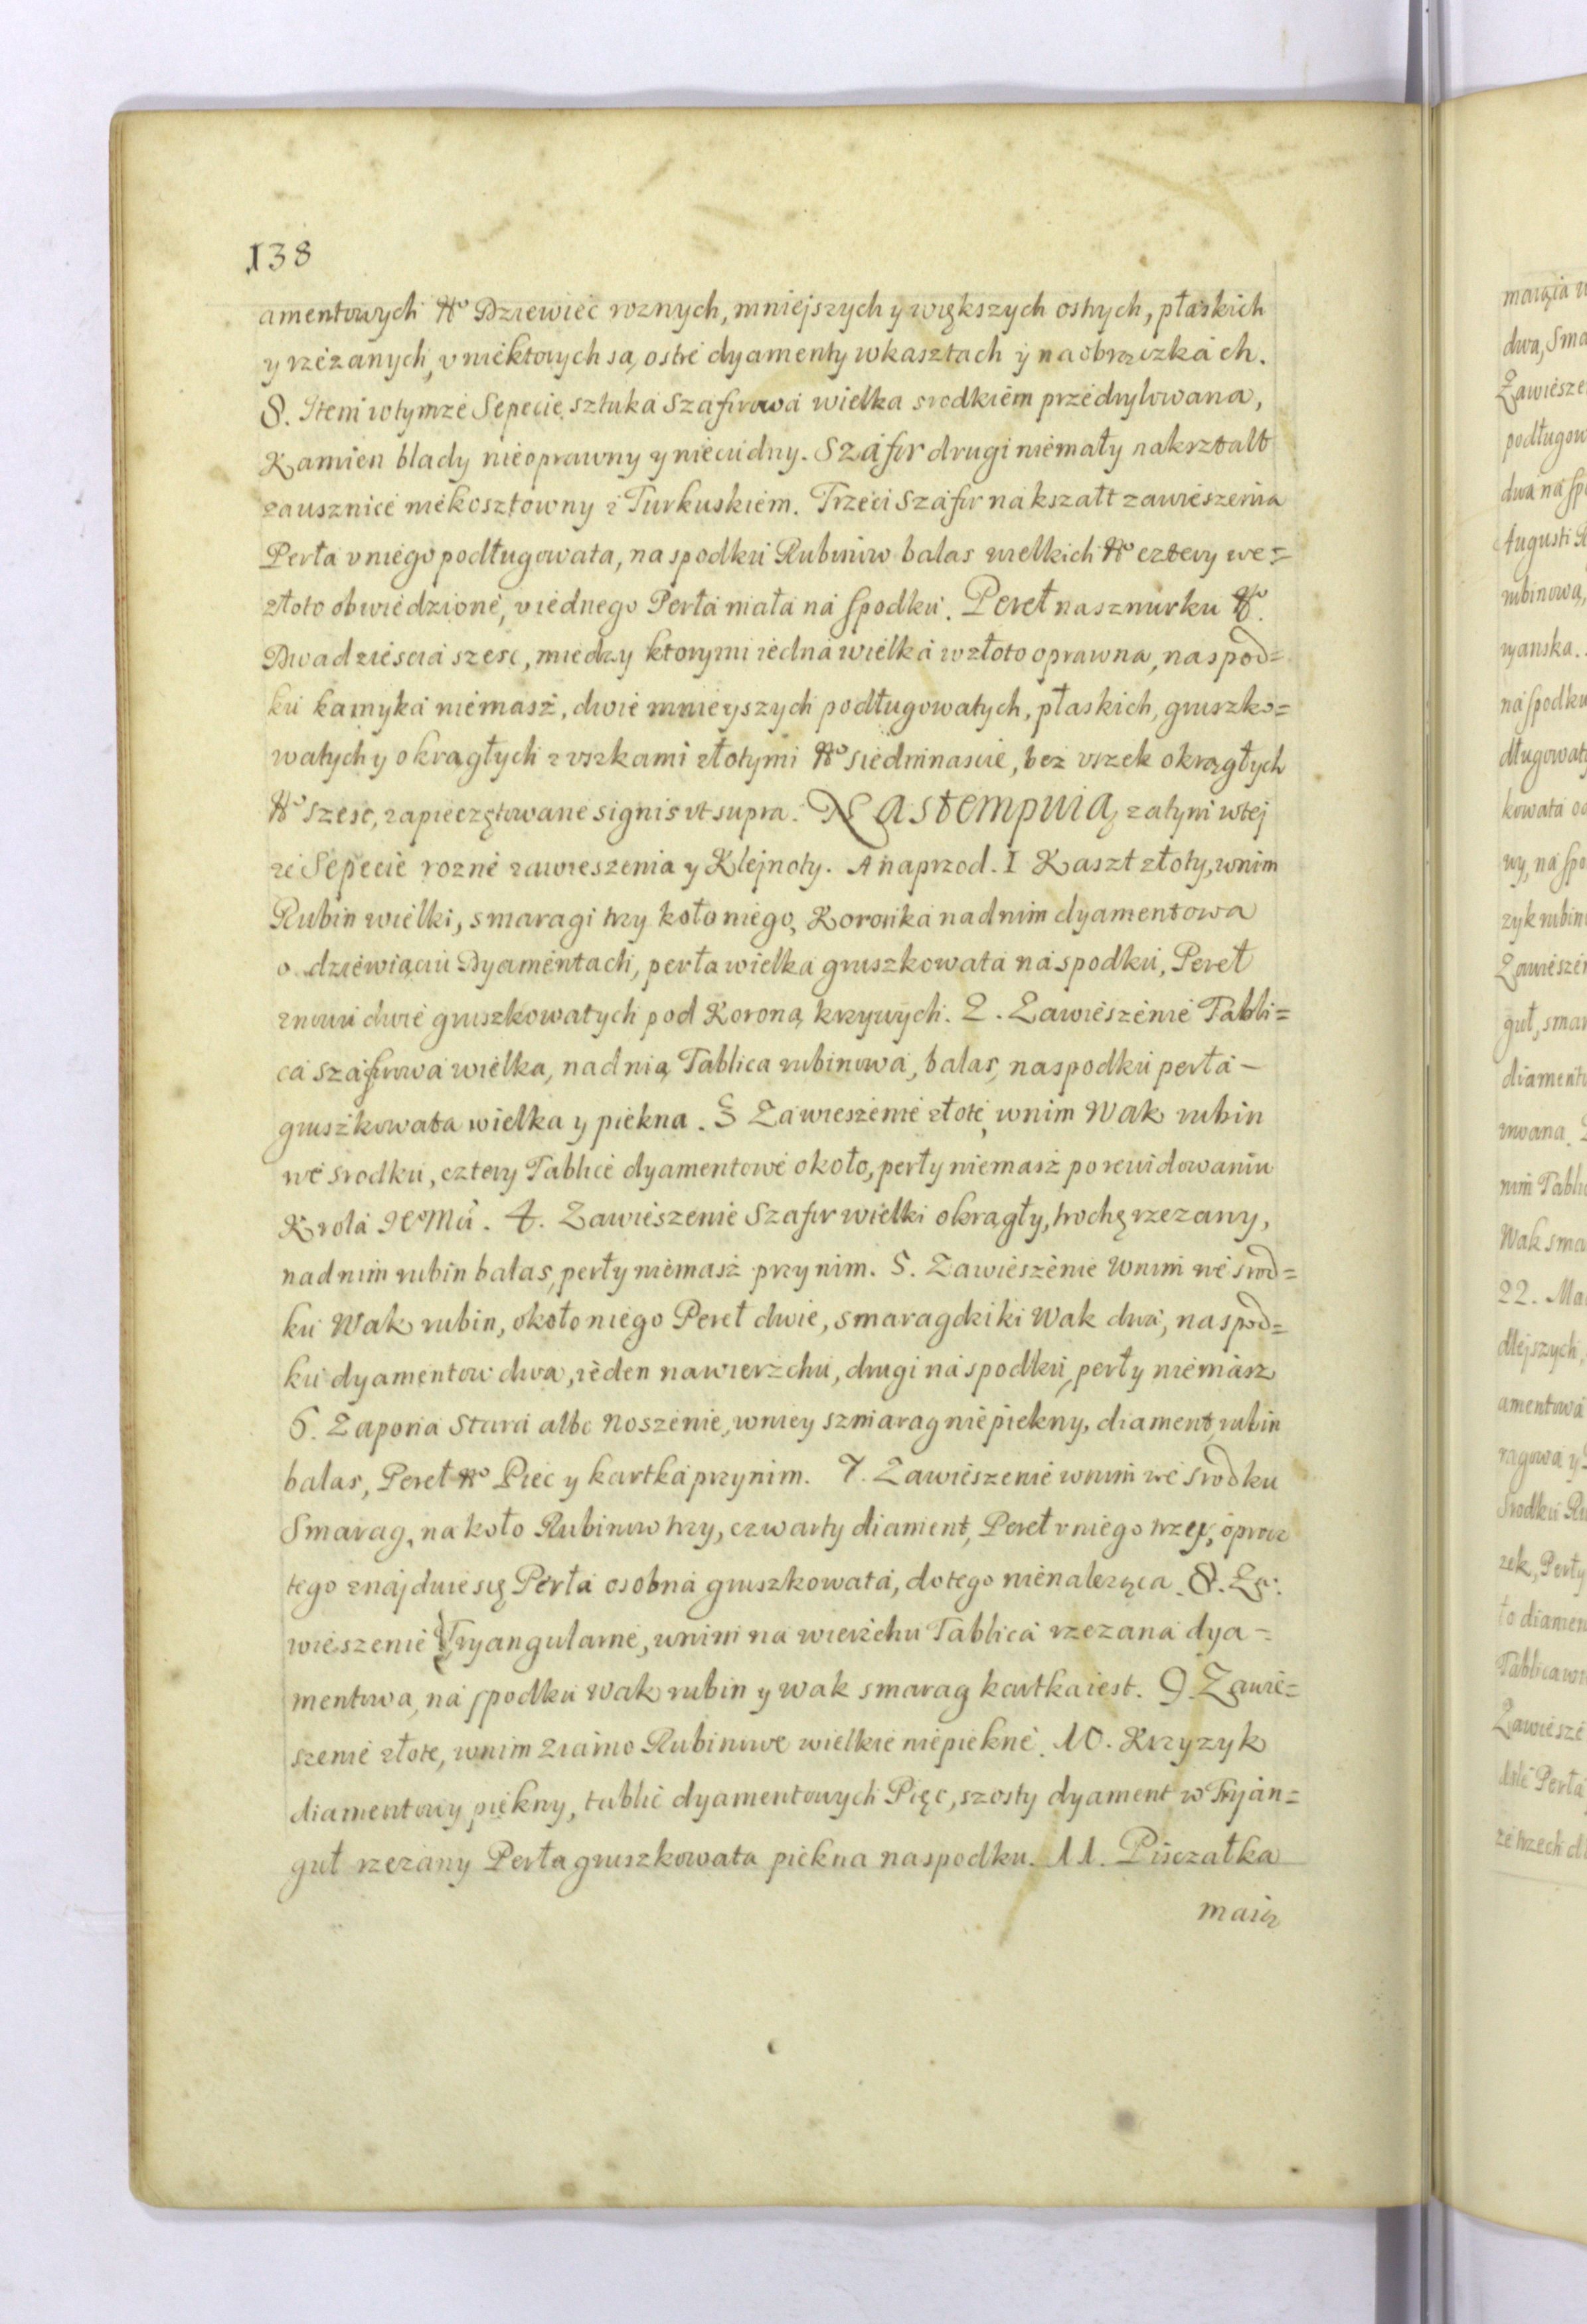 138
amentowych No Dziewięć roznych, mniejszych y większych ostrych, płaskich
y rzezanych, v niektorych są, ostre dyamenty w kasztach y na obrzezkach.
8. Item w tymze Sepecie sztuka Szafirowa wielka srodkiem przedrylowana,
Kamien blady nieoprawny y niecudny. Szafir drugi niemały nakrztalt
zausznice niekosztowny z Turkuskiem. Trzeci Szafir nakszałt zawieszenia
Perła v niego podługowata, na spodku Rubinow balas wielkich No cztery we=
złoto obwiedzione, v iednego Perła mała na spodku. Pereł na sznurku No.
Dwadziescia szesc, miedzy ktorymi iedna wielka w złoto oprawna, na spod=
ku kamyka niemasz, dwie mnieyszych podługowatych, płaskich, gruszko=
watych y okrągłych z vszkami złotymi No siedmnascie, bez vszek okrągłych
No szesc, zapieczętowane signis vt supra. Nastempuią zatym w tej
ze Sepecie rozne zawieszenia y Klejnoty. A naprzod. 1 Kaszt złoty, w nim
Rubin wielki, smaragi trzy koło niego, Koronka nad nim dyamentowa
o dziewiąciu Dyamentach, perła wielka gruszkowata na spodku, Pereł
znowu dwie gruszkowatych pod Koroną krzywych. 2. Zawieszenie Tabli=
ca szafirowa wielka, nad nią Tablica rubinowa, balas, na spodku perła –
gruszkowata wielka y piekna. 3 Zawieszenie złote, w nim Wak rubin
we srodku, cztery Tablice dyamentowe około, perły niemasz po rewidowaniu
Krola JeoMci. 4. Zawieszenie Szafir wielki okrągły, trochę rzezany,
nad nim rubin balas, perły niemasz przy nim. 5. Zawieszenie w nim we srod=
ku Wak rubin, około niego Pereł dwie, smaragdziki Wak dwa, na spod=
ku dyamentow dwa, ieden na wierzchu, drugi na spodku, perły niemasz
6. Zapona Stara albo Noszenie, w niey szmarag niepiekny, diament, rubin
balas, Pereł No Piec y kartka przy nim. 7. Zawieszenie w nim we srodku
Smarag, na koło Rubinow trzy, czwarty diament, Pereł v niego trzy, oprocz
tego znajduie się Perła osobna gruszkowata, do tego nienalezęca. 8. Za=
wieszenie Tryangularne, w nim na wierzchu Tablica rzezana dya=
mentowa, na spodku Wak rubin y wak smarag kartka iest. 9. Zawie=
szenie złote, w nim ziarno Rubinowe wielkie niepiekne. 10. Krzyzyk
diamentowy piękny, tablic dyamentowych Pięc, szosty dyament w Tryan=
guł rzezany Perła gruszkowata piekna na spodku. 11. Pisczałka
maią